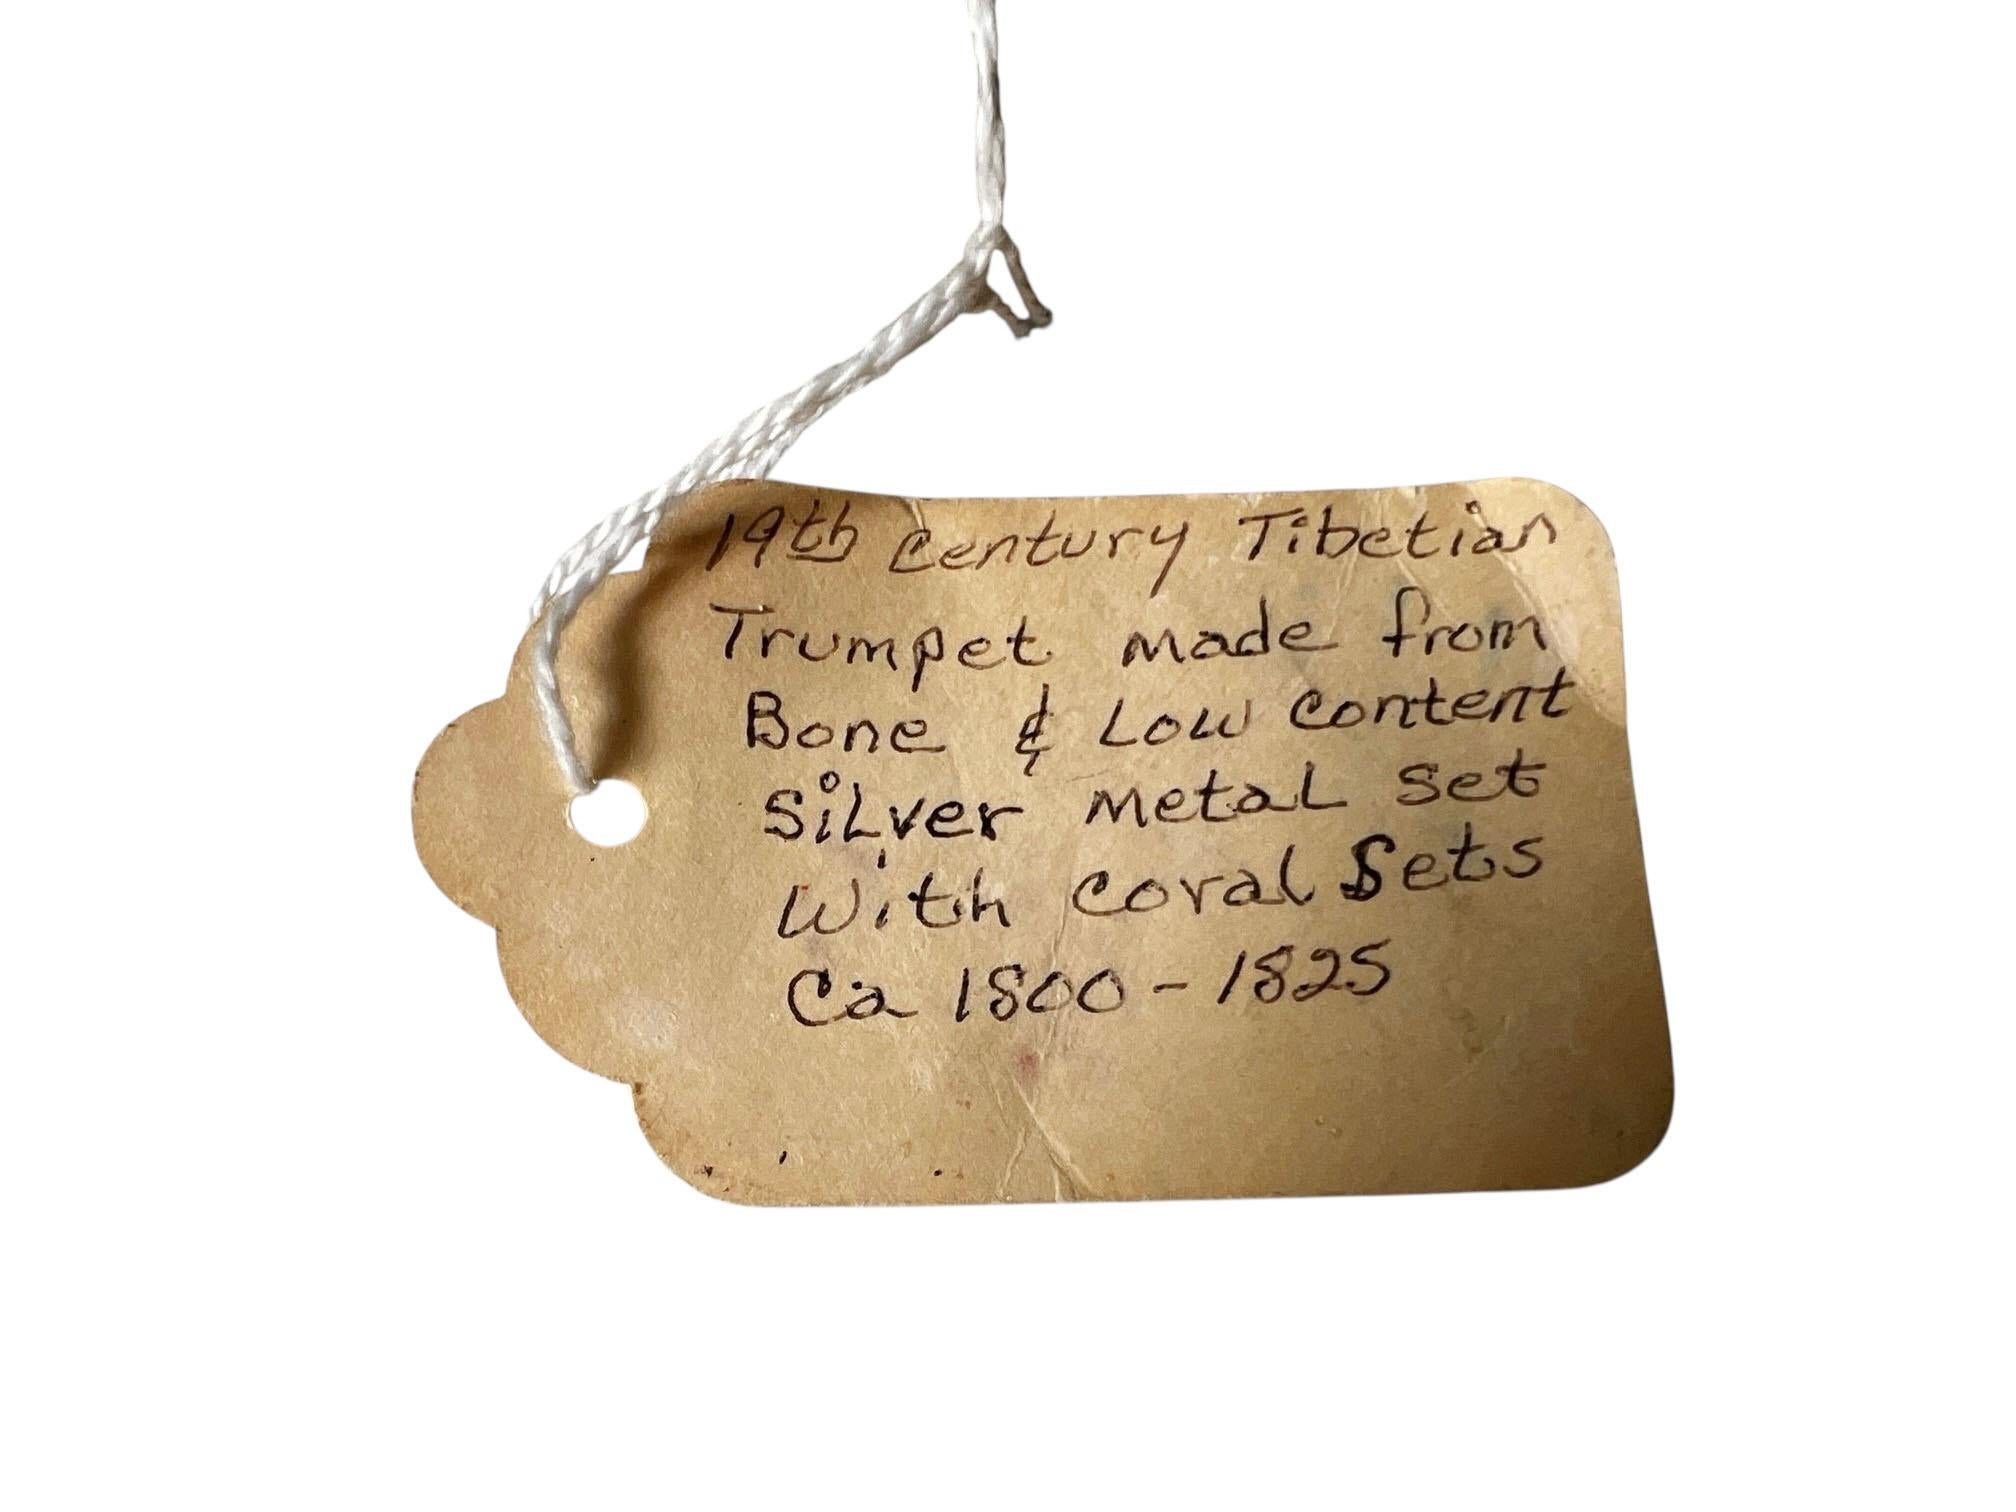 19th Century Tibetian
Trumpet made from
Bone & Low content
Silver Metal set
With Coral Sets
Ca 1800 - 1825